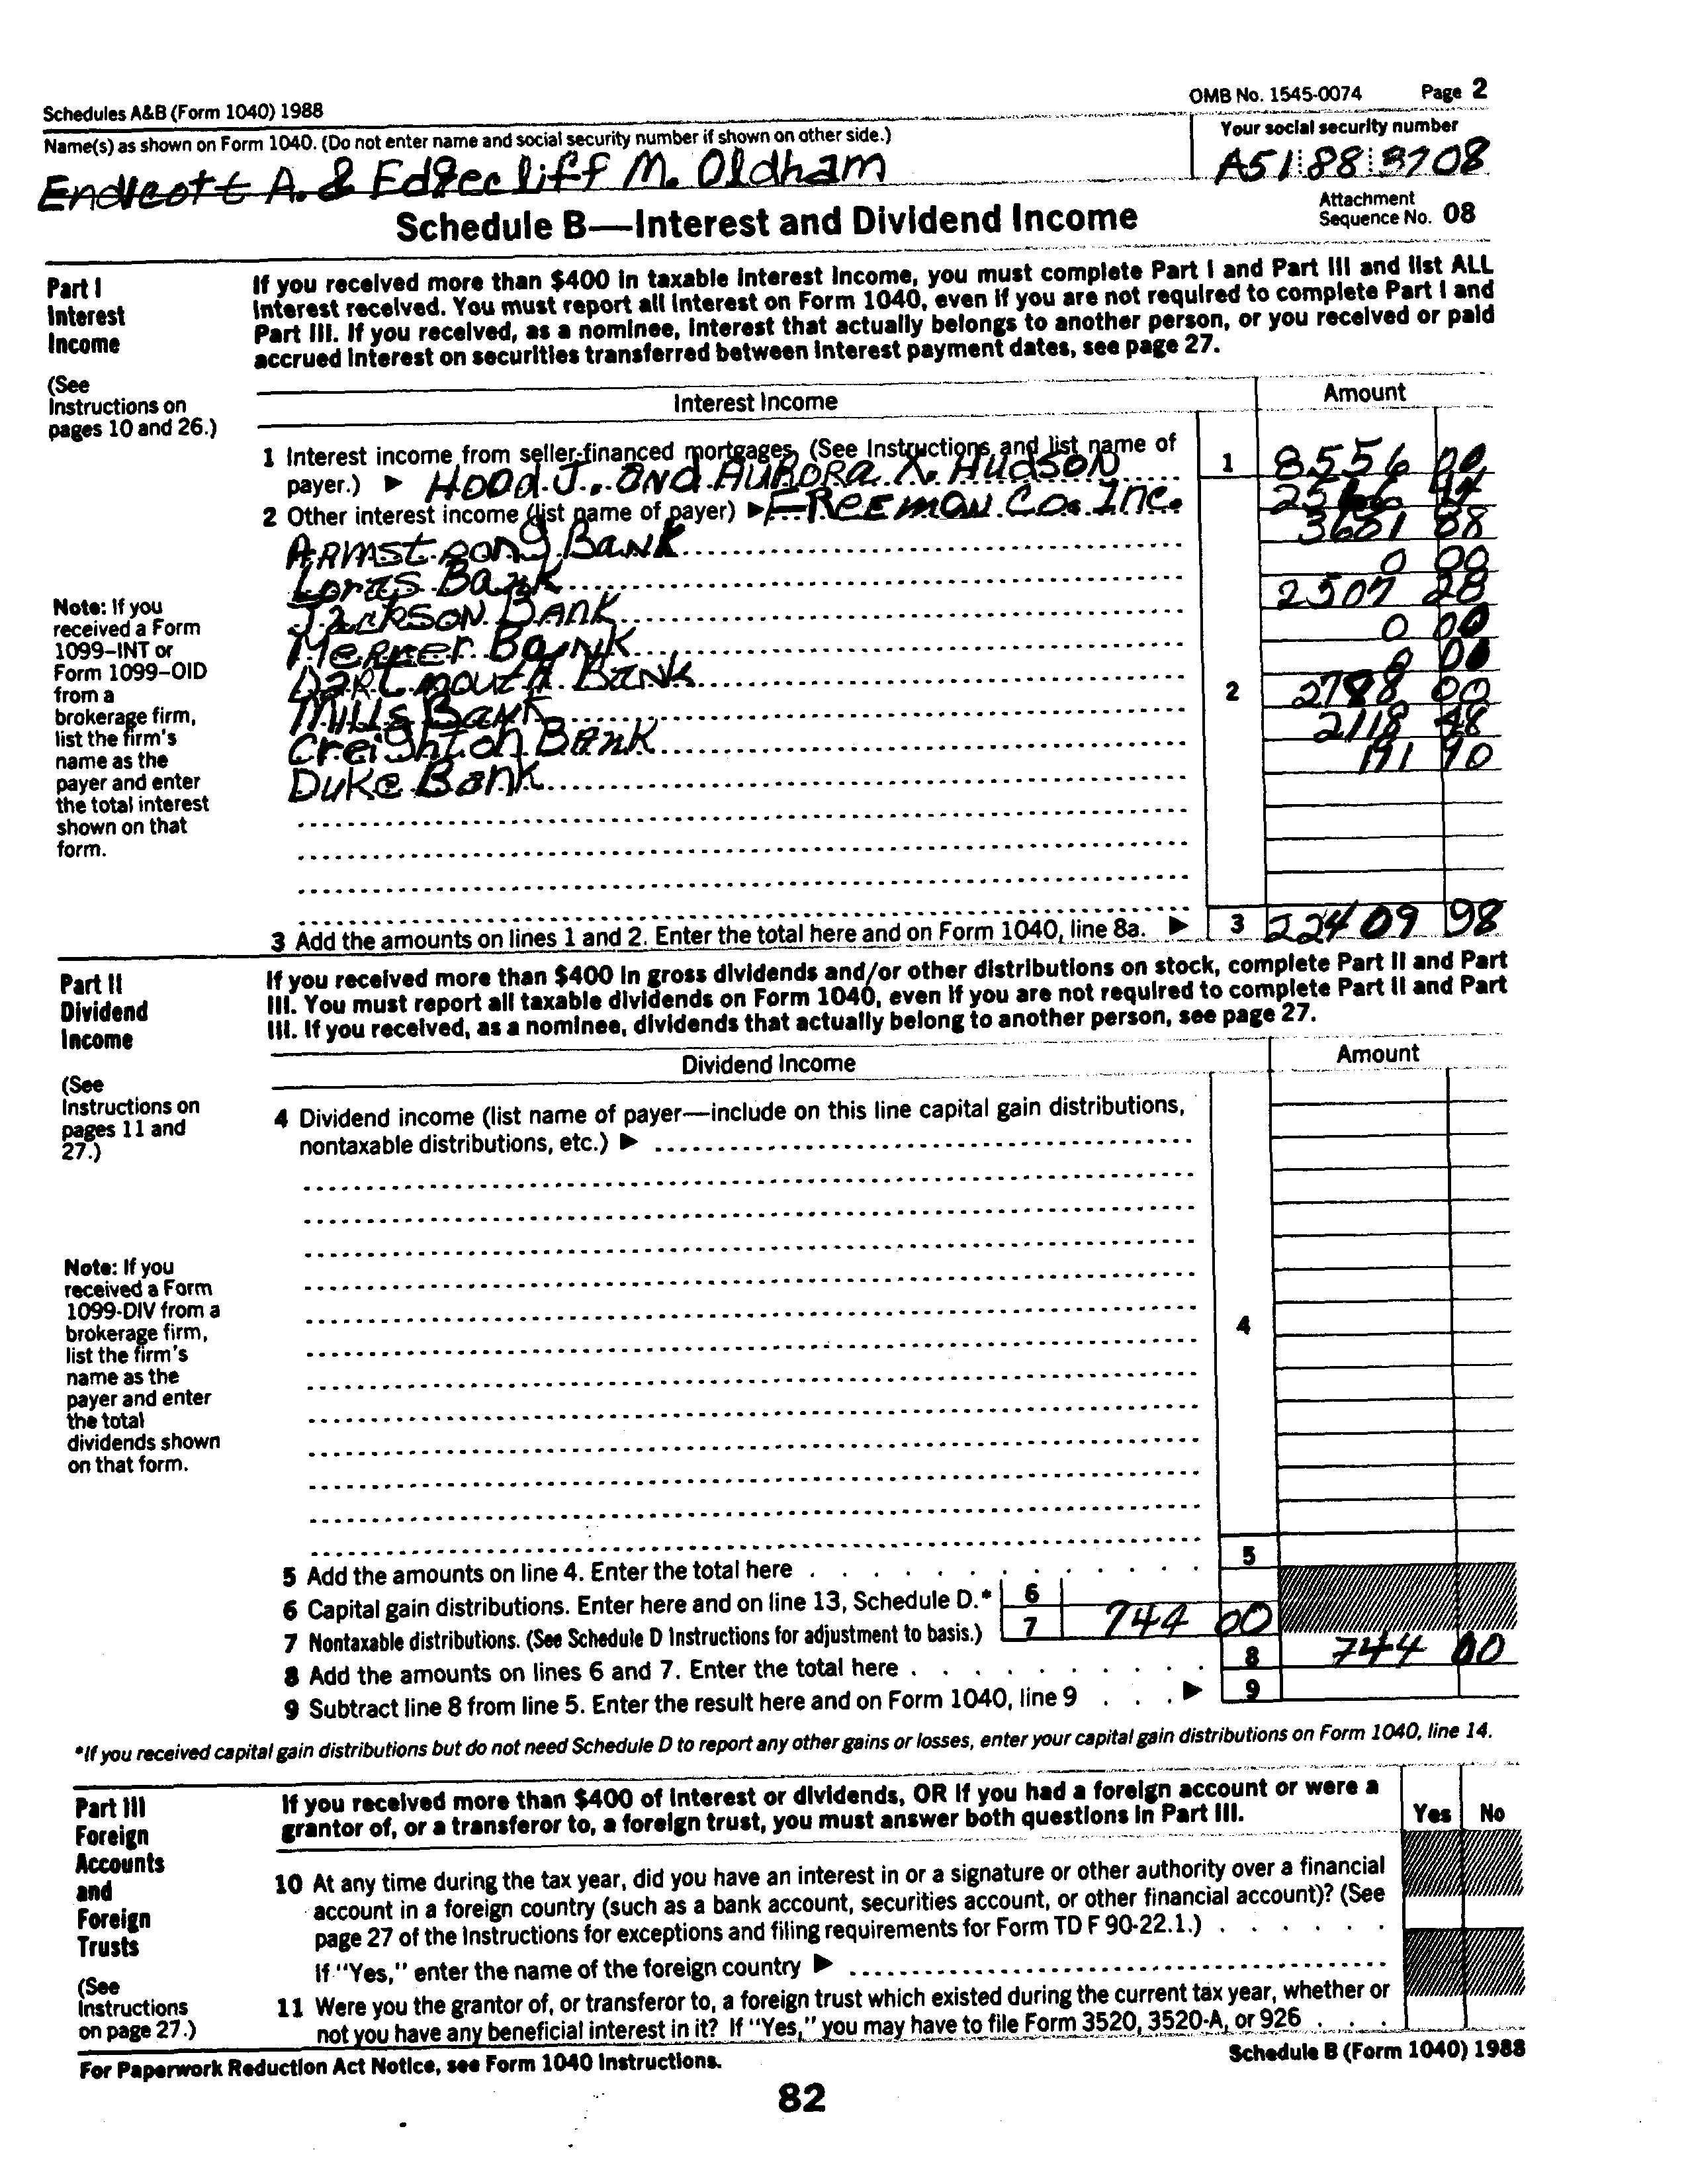 Schedules A&B (Form 1040) 1988 OMB No. 1545-0074 Page 2
Name(s) as shown on Form 1040. (Do not enter name and social security number if shown on other side.) Your social security number
Endicott A. & Edgecliff M. Oldham A51 88 3708
Schedule B—Interest and Dividend Income Attachment Sequence No. 08
Part I
Interest
Income
(See
Instructions on
pages 10 and 26.)
If you received more than $400 in taxable interest income, you must complete Part I and Part III and list ALL
interest received. You must report all interest on Form 1040, even if you are not required to complete Part I and
Part III. If you received, as a nominee, interest that actually belongs to another person, or you received or paid
accrued interest on securities transferred between interest payment dates, see page 27.
Interest Income Amount
1 Interest income from seller-financed mortgages. (See Instructions and list name of
payer.) ▶ Hood J. and Aurora X. Hudson 1 8556 00
2 Other interest income (list name of payer) ▶ Freeman Co. Inc. 44
Armstrong Bank 3681 88
Loras Bank 0 00
Jackson Bank 2507 28
Mercer Bank 0 00
Dartmouth Bank 0 00
Mills Bank 2 2788 00
Creighton Bank 2118 48
Duke Bank 191 90
Note: If you
received a Form
1099–INT or
Form 1099–OID
from a
brokerage firm,
list the firm's
name as the
payer and enter
the total interest
shown on that
form.
3 Add the amounts on lines 1 and 2. Enter the total here and on Form 1040, line 8a. ▶ 3 22409 98
Part II
Dividend
Income
(See
Instructions on
pages 11 and
27.)
If you received more than $400 in gross dividends and/or other distributions on stock, complete Part II and Part
III. You must report all taxable dividends on Form 1040, even if you are not required to complete Part II and Part
III. If you received, as a nominee, dividends that actually belong to another person, see page 27.
Dividend Income Amount
4 Dividend income (list name of payer—include on this line capital gain distributions,
nontaxable distributions, etc.) ▶
4
Note: If you
received a Form
1099-DIV from a
brokerage firm,
list the firm's
name as the
payer and enter
the total
dividends shown
on that form.
5 Add the amounts on line 4. Enter the total here 5
6 Capital gain distributions. Enter here and on line 13, Schedule D.* 6
7 Nontaxable distributions. (See Schedule D Instructions for adjustment to basis.) 7 744 00
8 Add the amounts on lines 6 and 7. Enter the total here 8 744 00
9 Subtract line 8 from line 5. Enter the result here and on Form 1040, line 9 ▶ 9
*If you received capital gain distributions but do not need Schedule D to report any other gains or losses, enter your capital gain distributions on Form 1040, line 14.
Part III
Foreign
Accounts
and
Foreign
Trusts
(See
Instructions
on page 27.)
If you received more than $400 of interest or dividends, OR if you had a foreign account or were a
grantor of, or a transferor to, a foreign trust, you must answer both questions in Part III. Yes No
10 At any time during the tax year, did you have an interest in or a signature or other authority over a financial
account in a foreign country (such as a bank account, securities account, or other financial account)? (See
page 27 of the Instructions for exceptions and filing requirements for Form TD F 90-22.1.)
If "Yes," enter the name of the foreign country ▶
11 Were you the grantor of, or transferor to, a foreign trust which existed during the current tax year, whether or
not you have any beneficial interest in it? If "Yes," you may have to file Form 3520, 3520-A, or 926
For Paperwork Reduction Act Notice, see Form 1040 Instructions. Schedule B (Form 1040) 1988
82